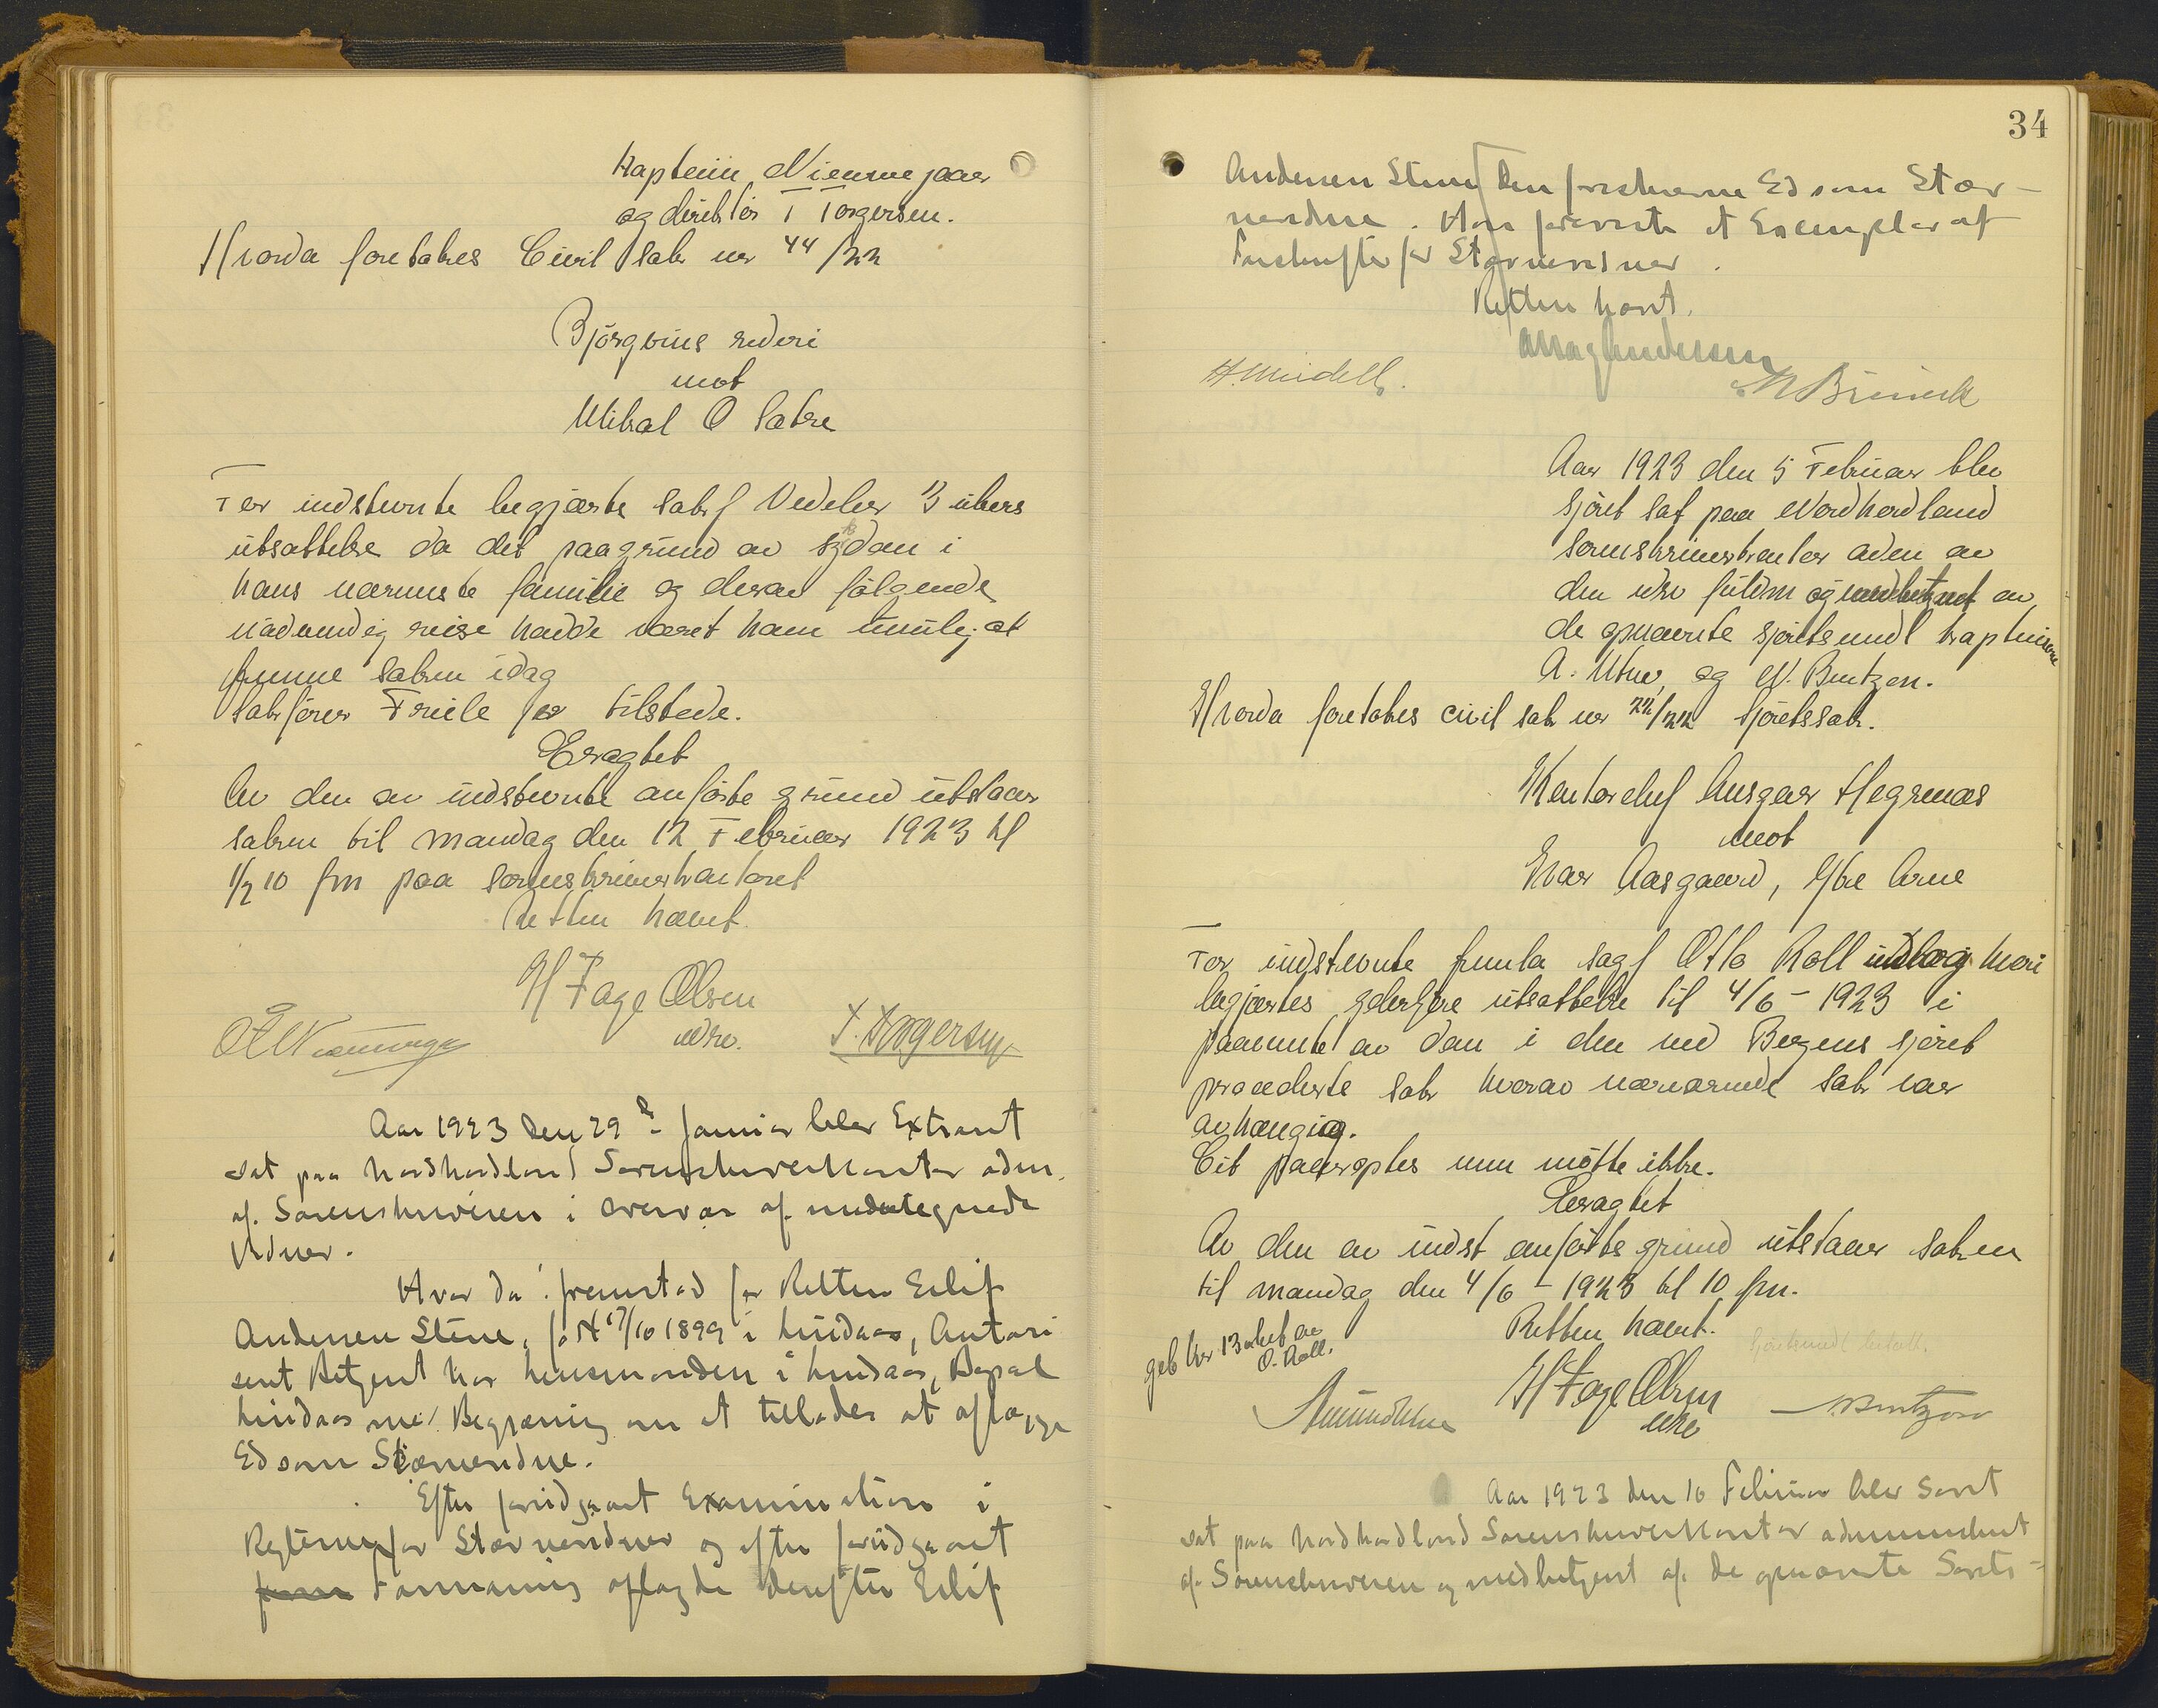 Kaptein
og direktör T Torgersen.
Hvorda foretakes Civil sak nr 44/22
Björgvins rederi
mot
Mikal O Sakre
For indstevnte begjærte sakf Vedeler 3 ukers
utsættelse da det paagrund av sygdom i
hans nærmeste familie og derav følgende
nödvendig reise hadde været ham umulig at
fremme saken idag
Sakfører Friele er tilstede.
Eragtet
Av den av indstevnte anförte grund utstaar
saken til mandag den 12 Februar 1923 kl
1/2 10 fm paa sorenskriverkontoret
Retten hævet.
H Fage Olsen
edsv.
T. Torgersen
Aar 1923 den 29de Januar blev Extraret
sat paa Nordhordland Sorenskriverkontor adm.
af Sorenskriveren i Overvær af undertegnede
Vidner.
Hvor da fremstod for Retten Eilif
Andersen Stene, fôdt 17/10 1899 i Lindaas, Kontori
sent Betjent hos lensmanden i Lindaas, Bopæl
Lindaas med Begjæring om at tillades at aflægge
Ed som Stævnevidne.
Efter foretaget Examination i
Reglerne for Stævnevidner og efter foretaget
Formaning aflagde derefter Eilif
34
Andersen Stene den foreskrevne Ed som Stæv-
nevidne. Han foreviste et Exemplar af
Forskrifter for Stævnevidner.
Retten hævet.
Mag Andersen
Aar 1923 den 5 Februar blev
sjöret sat paa Nordhordland
sorenskriverkontor adm av
den edsv fuldm og medbetjent av
de opnævnte sjöretsmedl kapteinerne
A. Utne og N. Bentzon.
Hvorda foretakes civil sak nr 22/22 Sjöretssak.
Kontorchef Ansgar Hegrenæs
mot
Ivar Aasgaard, Ytre Arne
For indstevnte fremla sagf Otto Roll indlæg hvori
begjæres yderligere utsættelse til 4/6 - 1923 i
paavente av dom i den ved Bergens sjöret
procederte sak hvorav nærværende sak var
avhængig.
Cit paaroptes men mötte ikke.
Eragtet
Av den av indst anförte grund utstaar saken
til mandag den 4/6 - 1923 kl 10 fm.
Retten hævet.
geb kr 13 bet av
O. Roll.
H Fage Olsen
edsv
N Bentzon
Aar 1923 den 10 Februar blev Søret
sat paa Nordhordland Sorenskriverkontor administreret
af Sorenskriveren og medbetjent af de opnævnte Sørets-